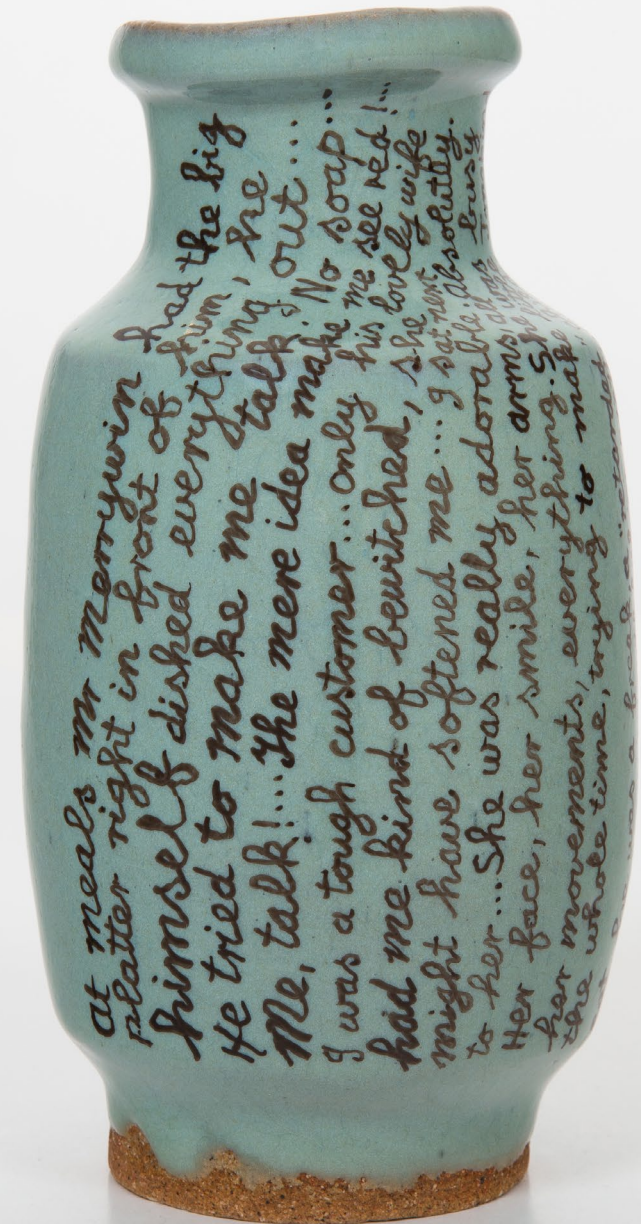 At meals Mr Merrywin had the big
platter right in front of him, he
himself dished everything out...
He tried to make me talk
Me, talk!... The mere idea make No soap...
I was a tough customer... only his me see red!...
had me kind of bewitched, she lovely wife
might have softened me... I sat next Absolutly.
to her... She was really adorable
Her face, her smile, her arms
her movements, everything. S
the whole time, trying to make